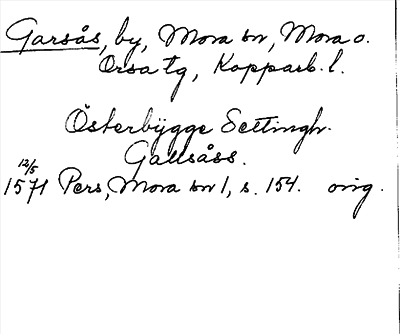 Garsås, by, Mora sn, Mora o.
Orsa tg, Kopparb. l.
Österbygge Settingh.
Gallsåss.
12/5
1571 Pers, Mora sn 1, s. 154. orig.